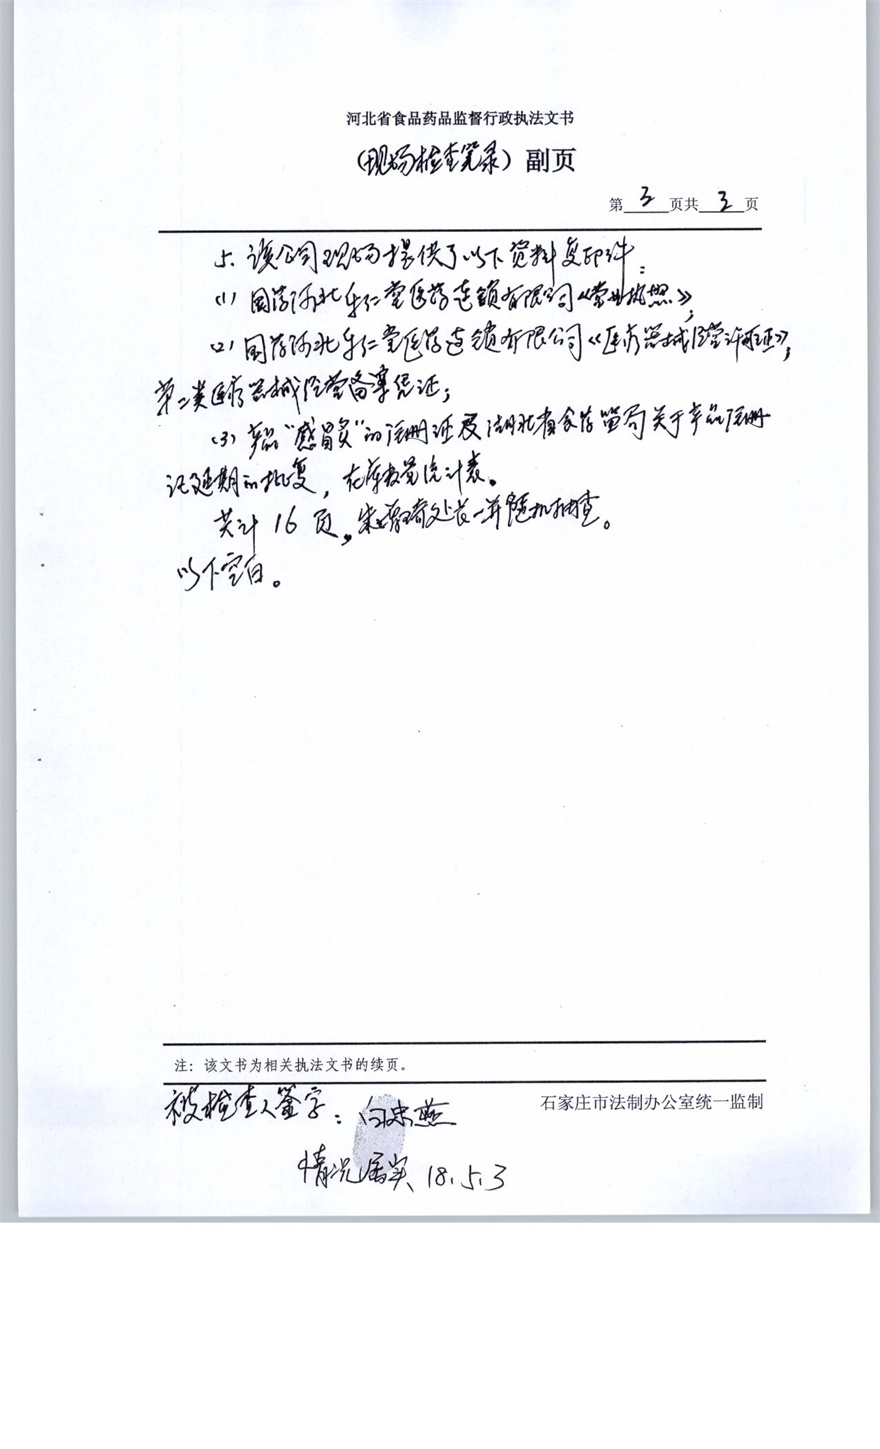 河北省食品药品监督行政执法文书
(现场检查笔录)副页
第 3 页共 3 页
5.该公司现场提供了以下资料复印件:
(1)国药河北乐仁堂医药连锁有限公司《营业执照》;
(2)国药河北乐仁堂医药连锁有限公司《医疗器械经营许可证》,
第二类医疗器械经营备案凭证;
(3)产品“感冒灸”的注册证及湖北省食药监局关于产品注册
证延期的批复,在库数量统计表。
共计16页。处长一并随机抽查。
以下空白。
注:该文书为相关执法文书的续页。
石家庄市法制办公室统一监制
被检查人签字:白忠燕
情况属实 18.5.3